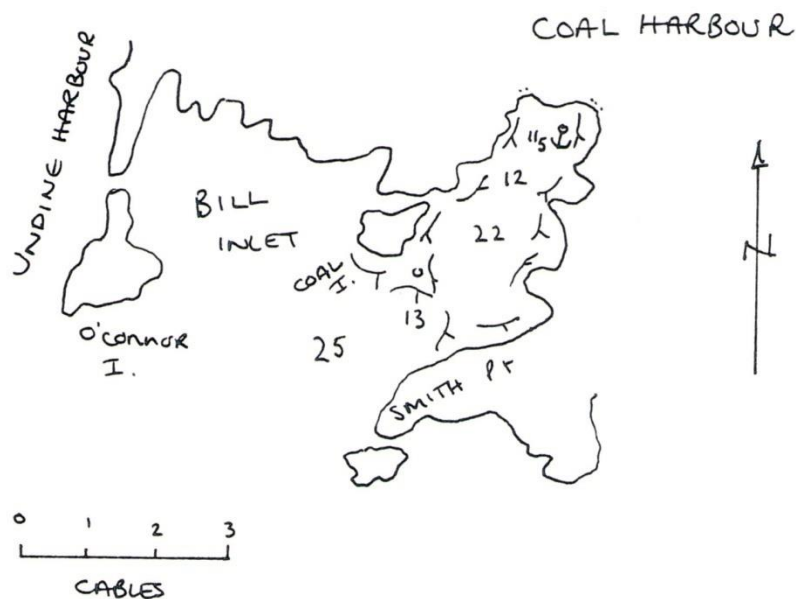 COAL HARBOUR
UNDINE HARBOUR
115
12
BILL
INLET
22
COAL
I.
13
25
O'CONNOR
I.
SMITH PT
N
0 1 2 3
CABLES